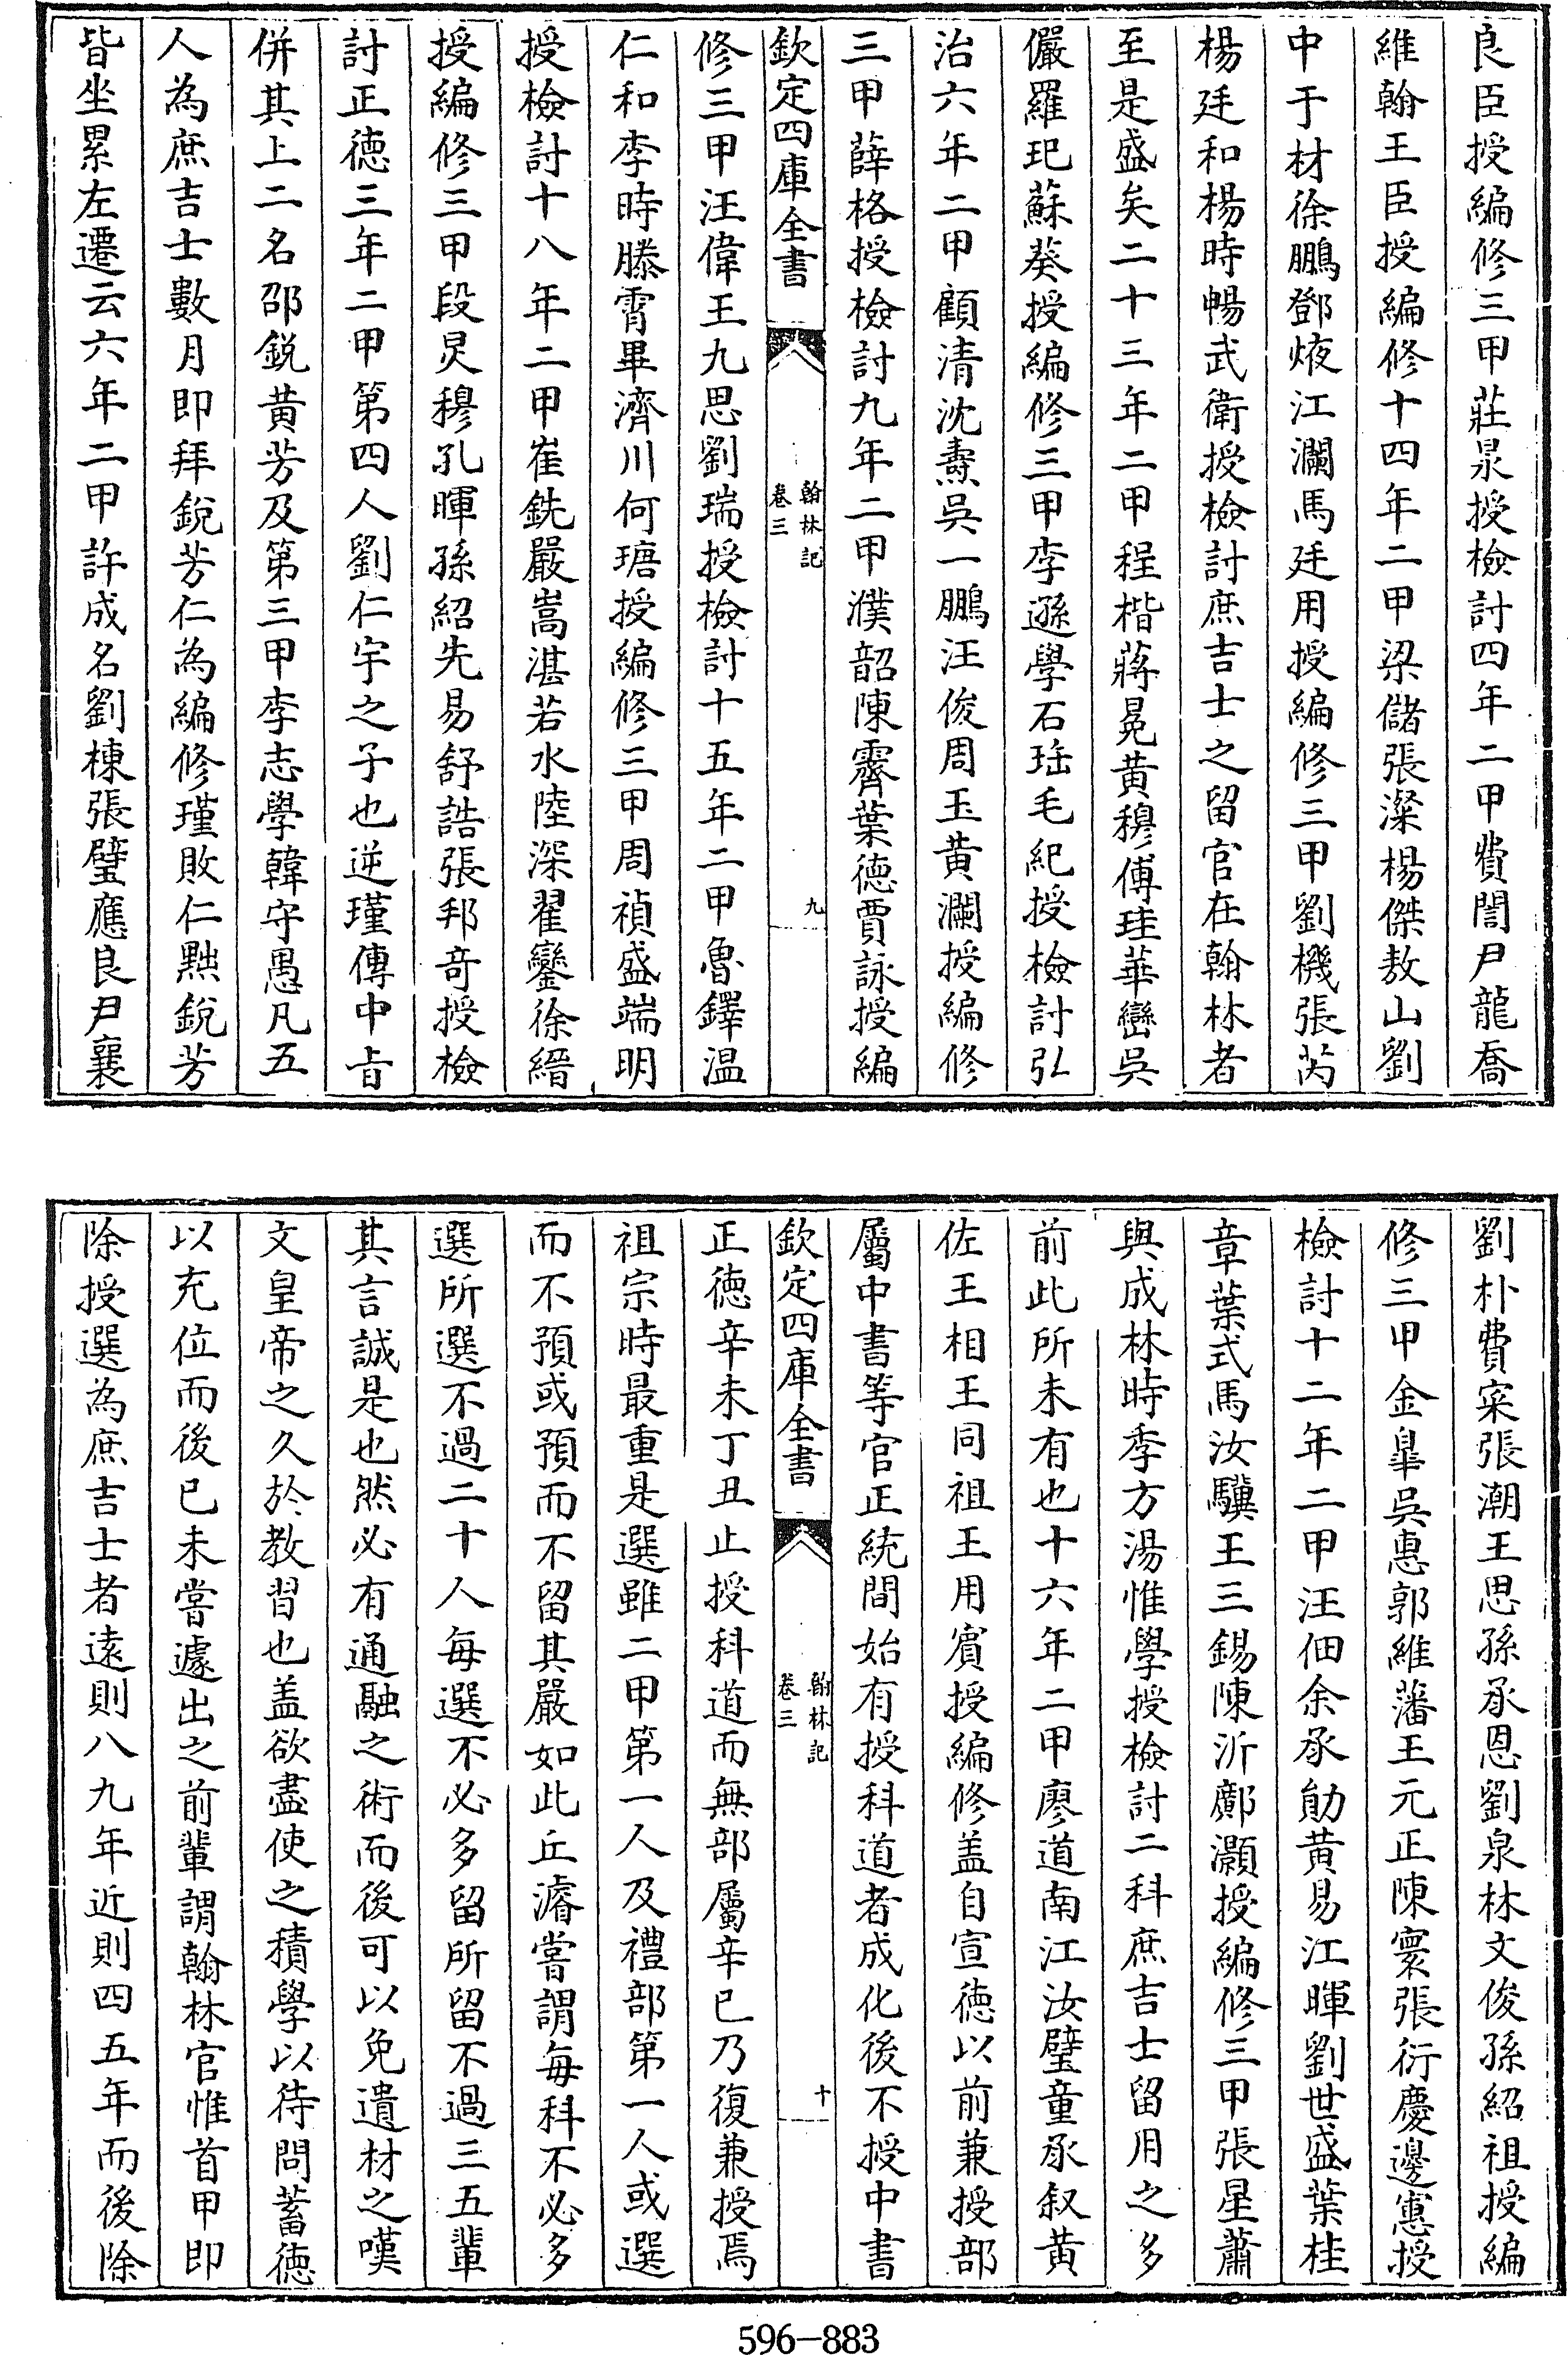 良臣授編修三甲莊泉授檢討四年二甲費誾尹龍喬
維翰王臣授編修十四年二甲梁儲張澯楊傑敖山劉
中于材徐鵬鄧焲江瀾馬廷用授編修三甲劉機張芮
楊廷和楊時暢武衛授檢討庶吉士之留官在翰林者
至是盛矣二十三年二甲程楷蔣冕黃穆傅珪華巒吳
儼羅玘蘇葵授編修三甲李遜學石珤毛紀授檢討弘
治六年二甲顧清沈燾吳一鵬汪俊周玉黃瀾授編修
三甲薛格授檢討九年二甲濮韶陳霽葉德賈詠授編
欽定四庫全書
翰林記
卷三
九
修三甲汪偉王九思劉瑞授檢討十五年二甲魯鐸温
仁和李時滕霄畢濟川何瑭授編修三甲周禎盛端明
授檢討十八年二甲崔銑嚴嵩湛若水陸深翟鑾徐縉
授編修三甲段炅穆孔暉孫紹先易舒誥張邦奇授檢
討正德三年二甲第四人劉仁宇之子也逆瑾傳中旨
併其上二名邵銳黃芳及第三甲李志學韓守愚凡五
人為庶吉士數月即拜銳芳仁為編修瑾敗仁黜銳芳
皆坐累左遷云六年二甲許成名劉棟張璧應良尹襄
劉朴費寀張潮王思孫承恩劉泉林文俊孫紹祖授編
修三甲金臯吳惠郭維藩王元正陳寰張衍慶邊憲授
檢討十二年二甲汪佃余承勛黃易江暉劉世盛葉桂
章葉式馬汝驥王三錫陳沂鄺灝授編修三甲張星蕭
與成林時季方湯惟學授檢討二科庶吉士留用之多
前此所未有也十六年二甲廖道南江汝璧童承叙黃
佐王相王同祖王用賓授編修盖自宣德以前兼授部
屬中書等官正統間始有授科道者成化後不授中書
欽定四庫全書
翰林記
卷三
十
正德辛未丁丑止授科道而無部屬辛巳乃復兼授焉
祖宗時最重是選雖二甲第一人及禮部第一人或選
而不預或預而不留其嚴如此丘濬嘗謂每科不必多
選所選不過二十人每選不必多留所留不過三五輩
其言誠是也然必有通融之術而後可以免遺材之嘆
文皇帝之久於教習也盖欲盡使之積學以待問蓄德
以充位而後已未嘗遽出之前輩謂翰林官惟首甲即
除授選為庶吉士者遠則八九年近則四五年而後除
596-883